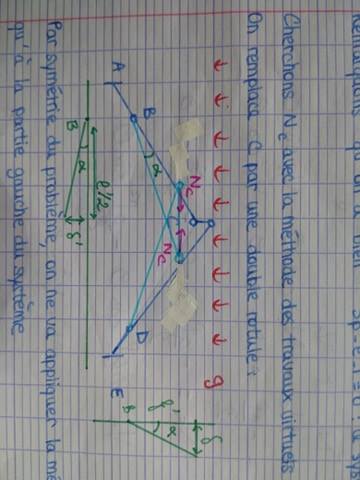 Cherchons Nc avec la méthode des travaux virtuels
On remplace C par une double rotule :
g
Nc
Nc
A
B
α
D
E
l/2
B
α
δ'
B
α
δ
Par symétrie du problème, on ne va appliquer la mé
qu'à la partie gauche du système